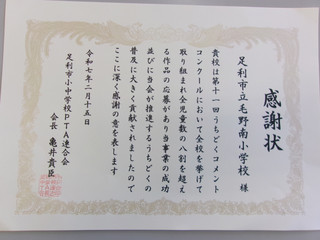 感謝状
足利市立毛野南小学校 様
貴校は第十一回うちどくコメント
コンクールにおいて全校を挙げて
取り組まれ全児童数の八割を超え
る作品の応募があり当事業の成功
並びに当会が推進するうちどくの
普及に大きく貢献されましたので
ここに深く感謝の意を表します
令和七年二月十五日
足利市小中学校PTA連合会
会長 亀井貴臣